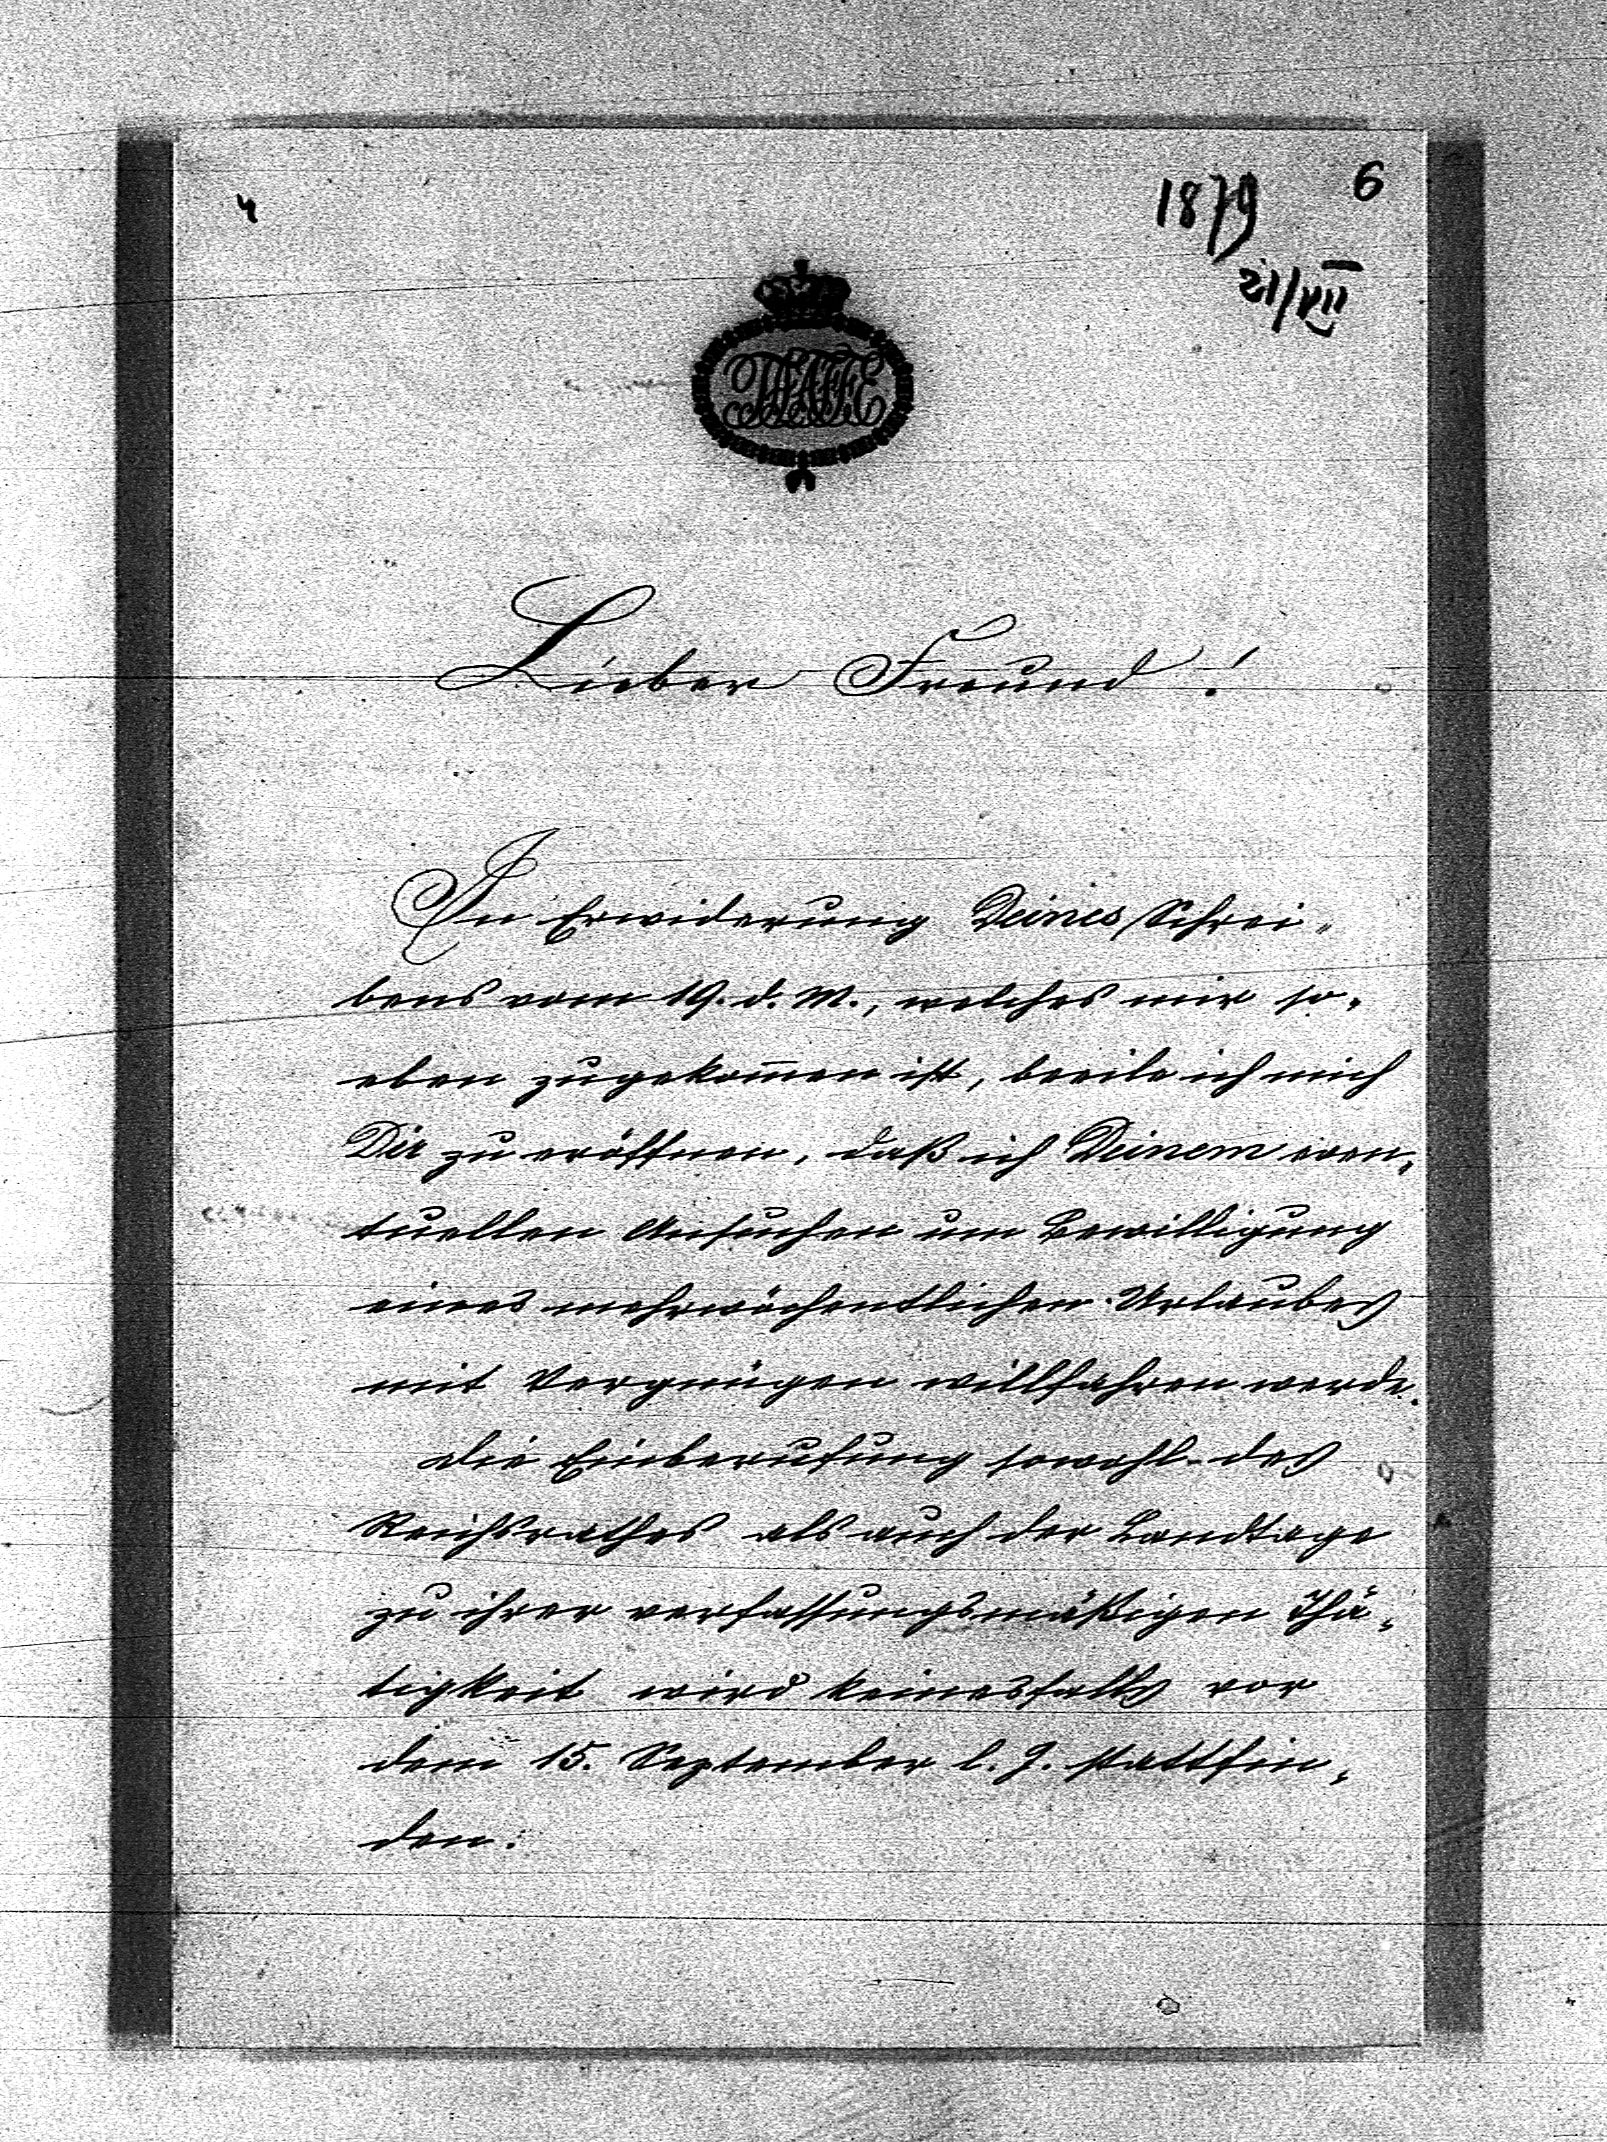 1879
6
21/VII
TAAFFE
Lieber Freund!
In Erwiderung Deines Schrei„
bens vom 19. d. M., welches mir so„
eben zugekom̅en ist, beeile ich mich
Dir zu eröffnen, daß ich Deinem even„
tuellen Ansuchen um Bewilligung
eines mehrwöchentlichen Urlaubes
mit Vergnügen willfahren werde.
Die Einberufung sowohl des
Reichsrathes als auch der Landtage
zu ihrer verfassungsmäßigen Thä„
tigkeit wird keinesfalls vor
dem 15. September l. J. stattfin„
den.